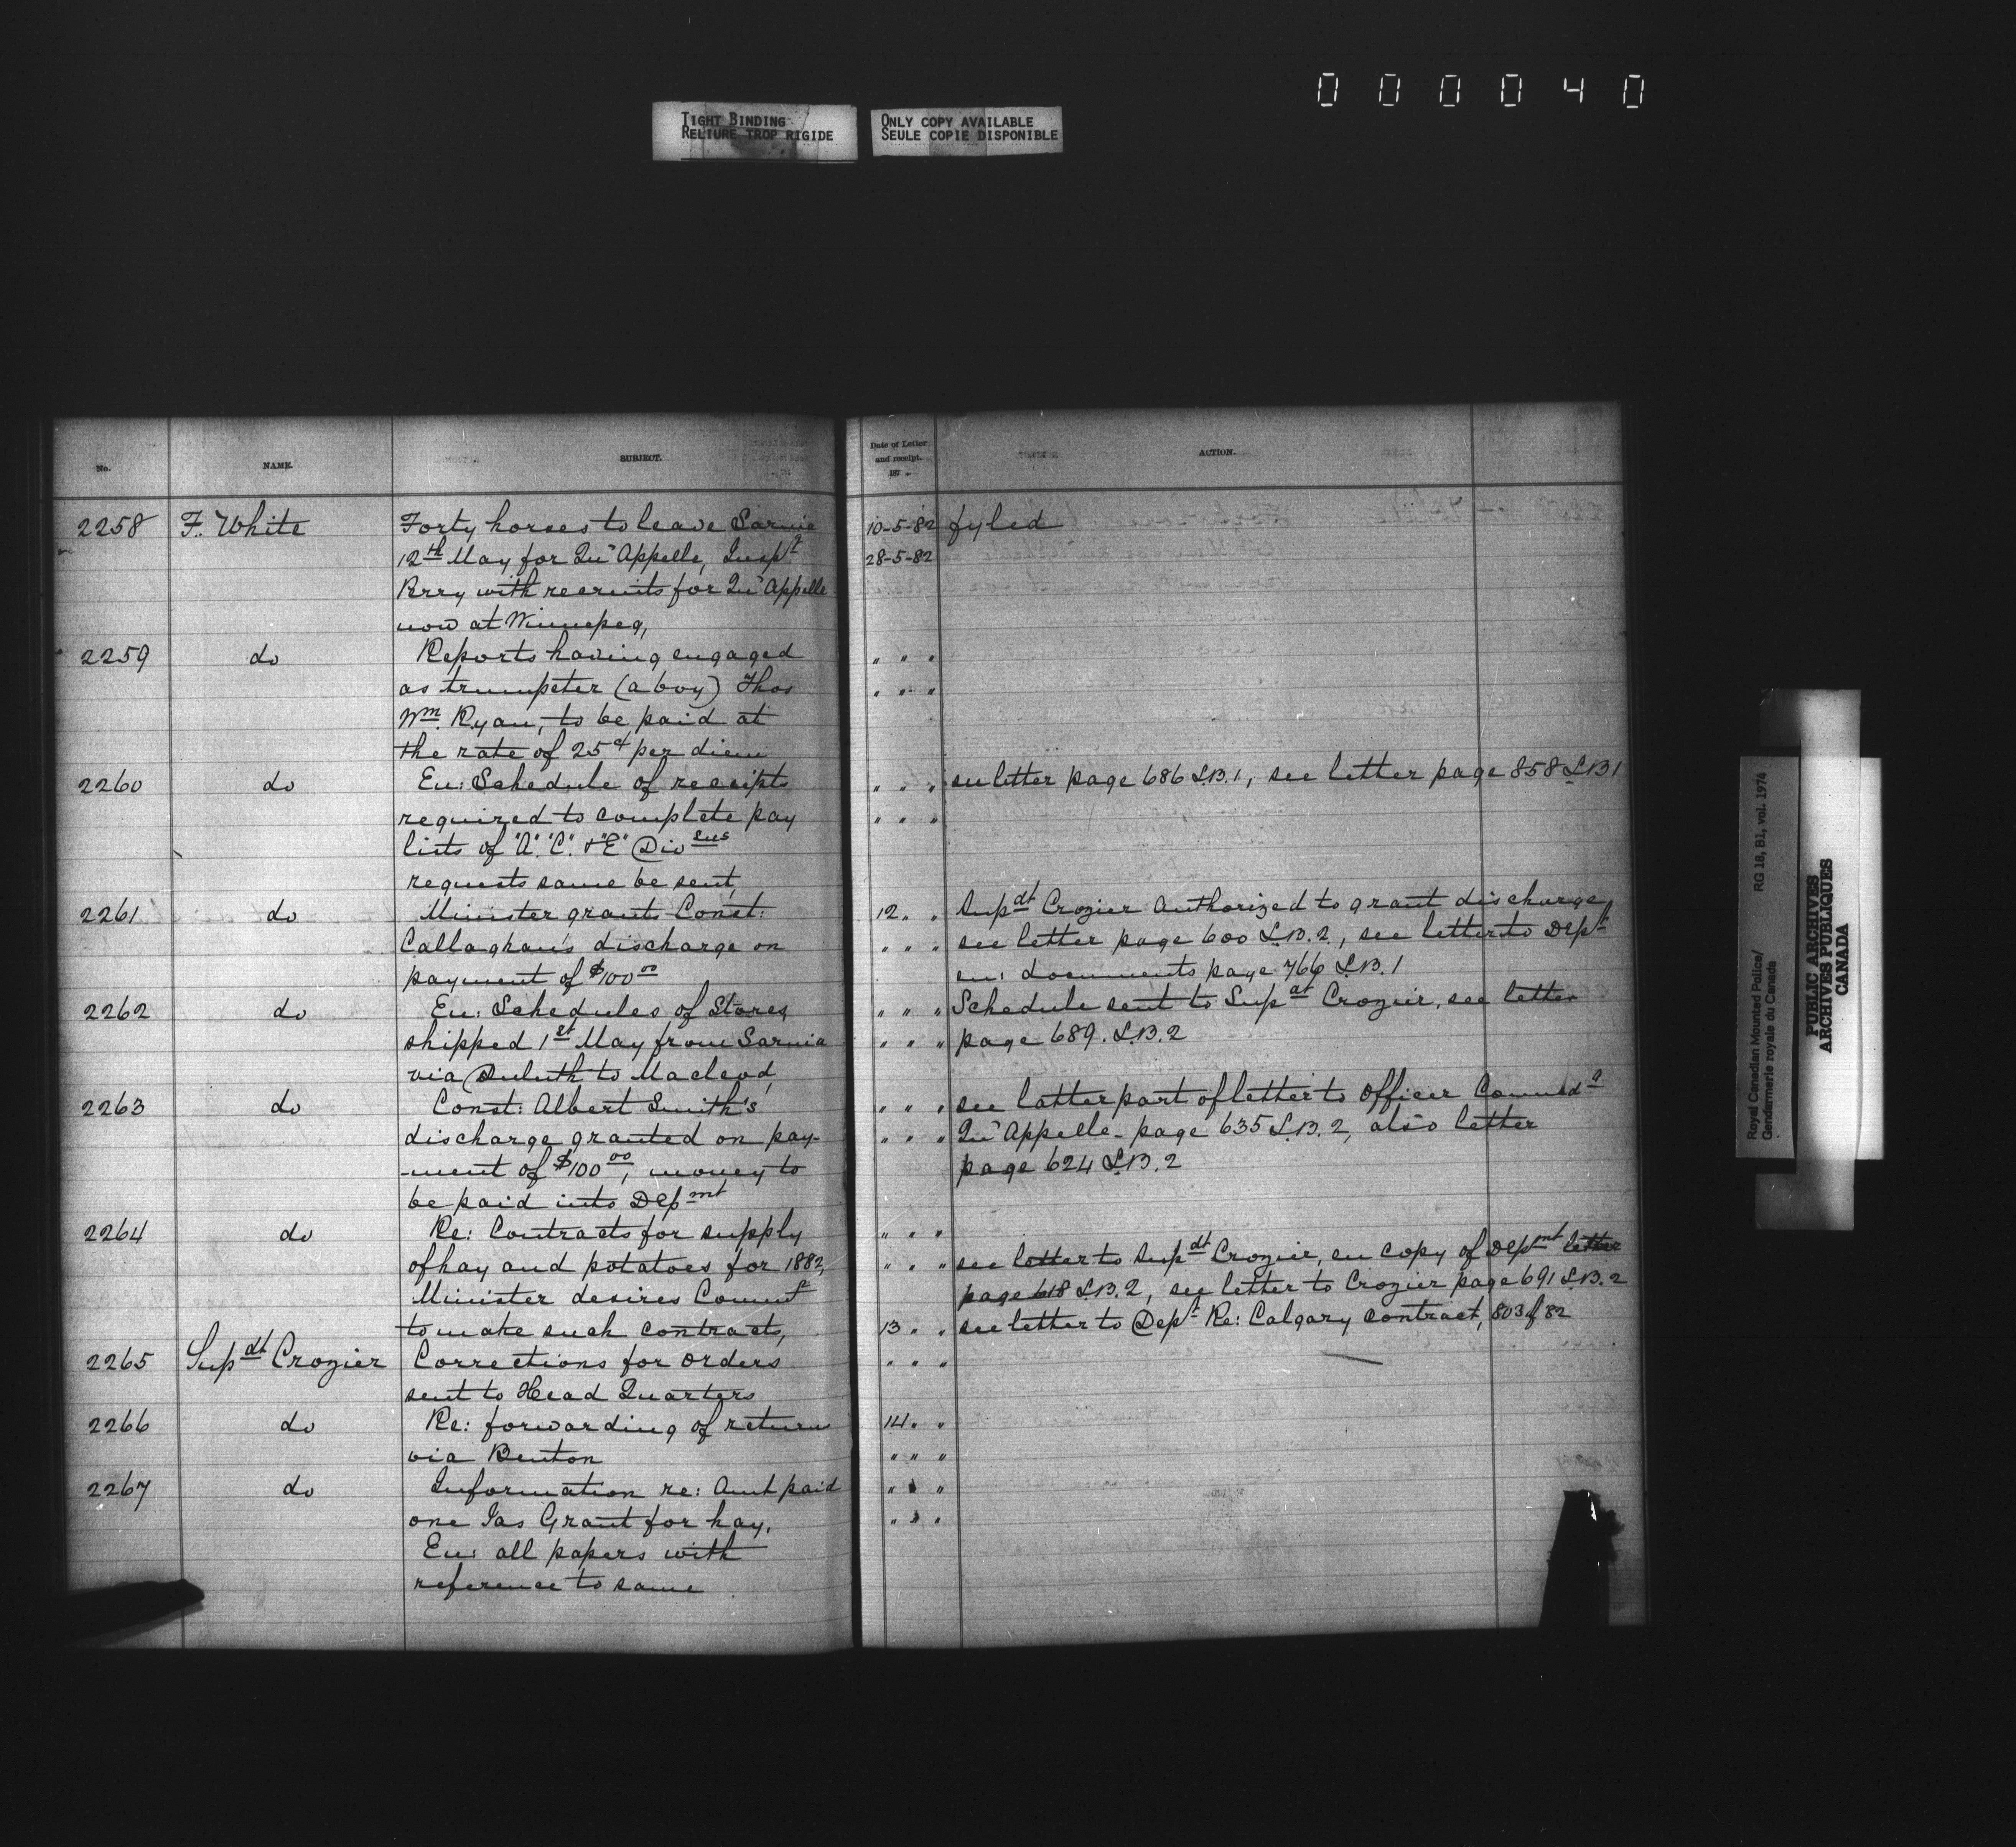 0 0 0 0 4 0
TIGHT BINDING
RELIURE TROP RIGIDE
ONLY COPY AVAILABLE
SEULE COPIE DISPONIBLE
No.
NAME.
SUBJECT.
Date of Letter
and receipt.
187
ACTION.
2258 F. White Forty horses to leave Sarnia 10-5-82 fyled
12th May for Qu'Appelle, Inspt 28-5-82
Perry with recruits for Qu'Appelle
now at Winnepeg,
2259 do Reports having engaged " " "
as trumpeter (a boy) Thos " " "
Wm Ryan, to be paid at
the rate of 25¢ per diem
2260 do En: Schedule of receipts " " " see letter page 686 L.B.1, see letter page 858 L.B 1
required to complete pay " " "
lists of "A". "C". & "E" Divsns
requests same be sent,
2261 do Minister grants Const: 12 " " Supdt Crozier Authorized to grant discharge,
Callaghan's discharge on " " " see letter page 600 L.B.2, see letter to Dept
payment of $100 00 en: documents page 766 L.B.1
2262 do En: Schedules of Stores " " " Schedule sent to Supdt Crozier, see letter
shipped 1st May from Sarnia " " " page 689. L.B.2
via Duluth to Macleod,
2263 do Const: Albert Smith's " " " see latter part of letter to Officer Commdg
discharge granted on pay- " " " Qu'Appelle - page 635 L.B.2, also letter
-ment of $100 00, money to page 624 L.B.2
be paid into Depmnt
2264 do Re: Contracts for supply " " "
of hay and potatoes for 1882, " " " see letter to Supdt Crozier, en copy of Depmnt letter
Minister desires Commt page 618 L.B.2, see letter to Crozier page 691 L.B.2
to make such contracts, 13 " " see letter to Dept Re: Calgary contract, 803 of 82
2265 Supdt Crozier Corrections for orders " " " —
sent to Head Quarters
2266 do Re: forwarding of returns 14 " "
via Benton " " "
2267 do Information re: Amt paid " " "
one Jas Grant for hay. " " "
En: all papers with
reference to same
Royal Canadian Mounted Police/ RG 18, B1, vol. 1974
Gendarmerie royale du Canada
PUBLIC ARCHIVES
ARCHIVES PUBLIQUES
CANADA